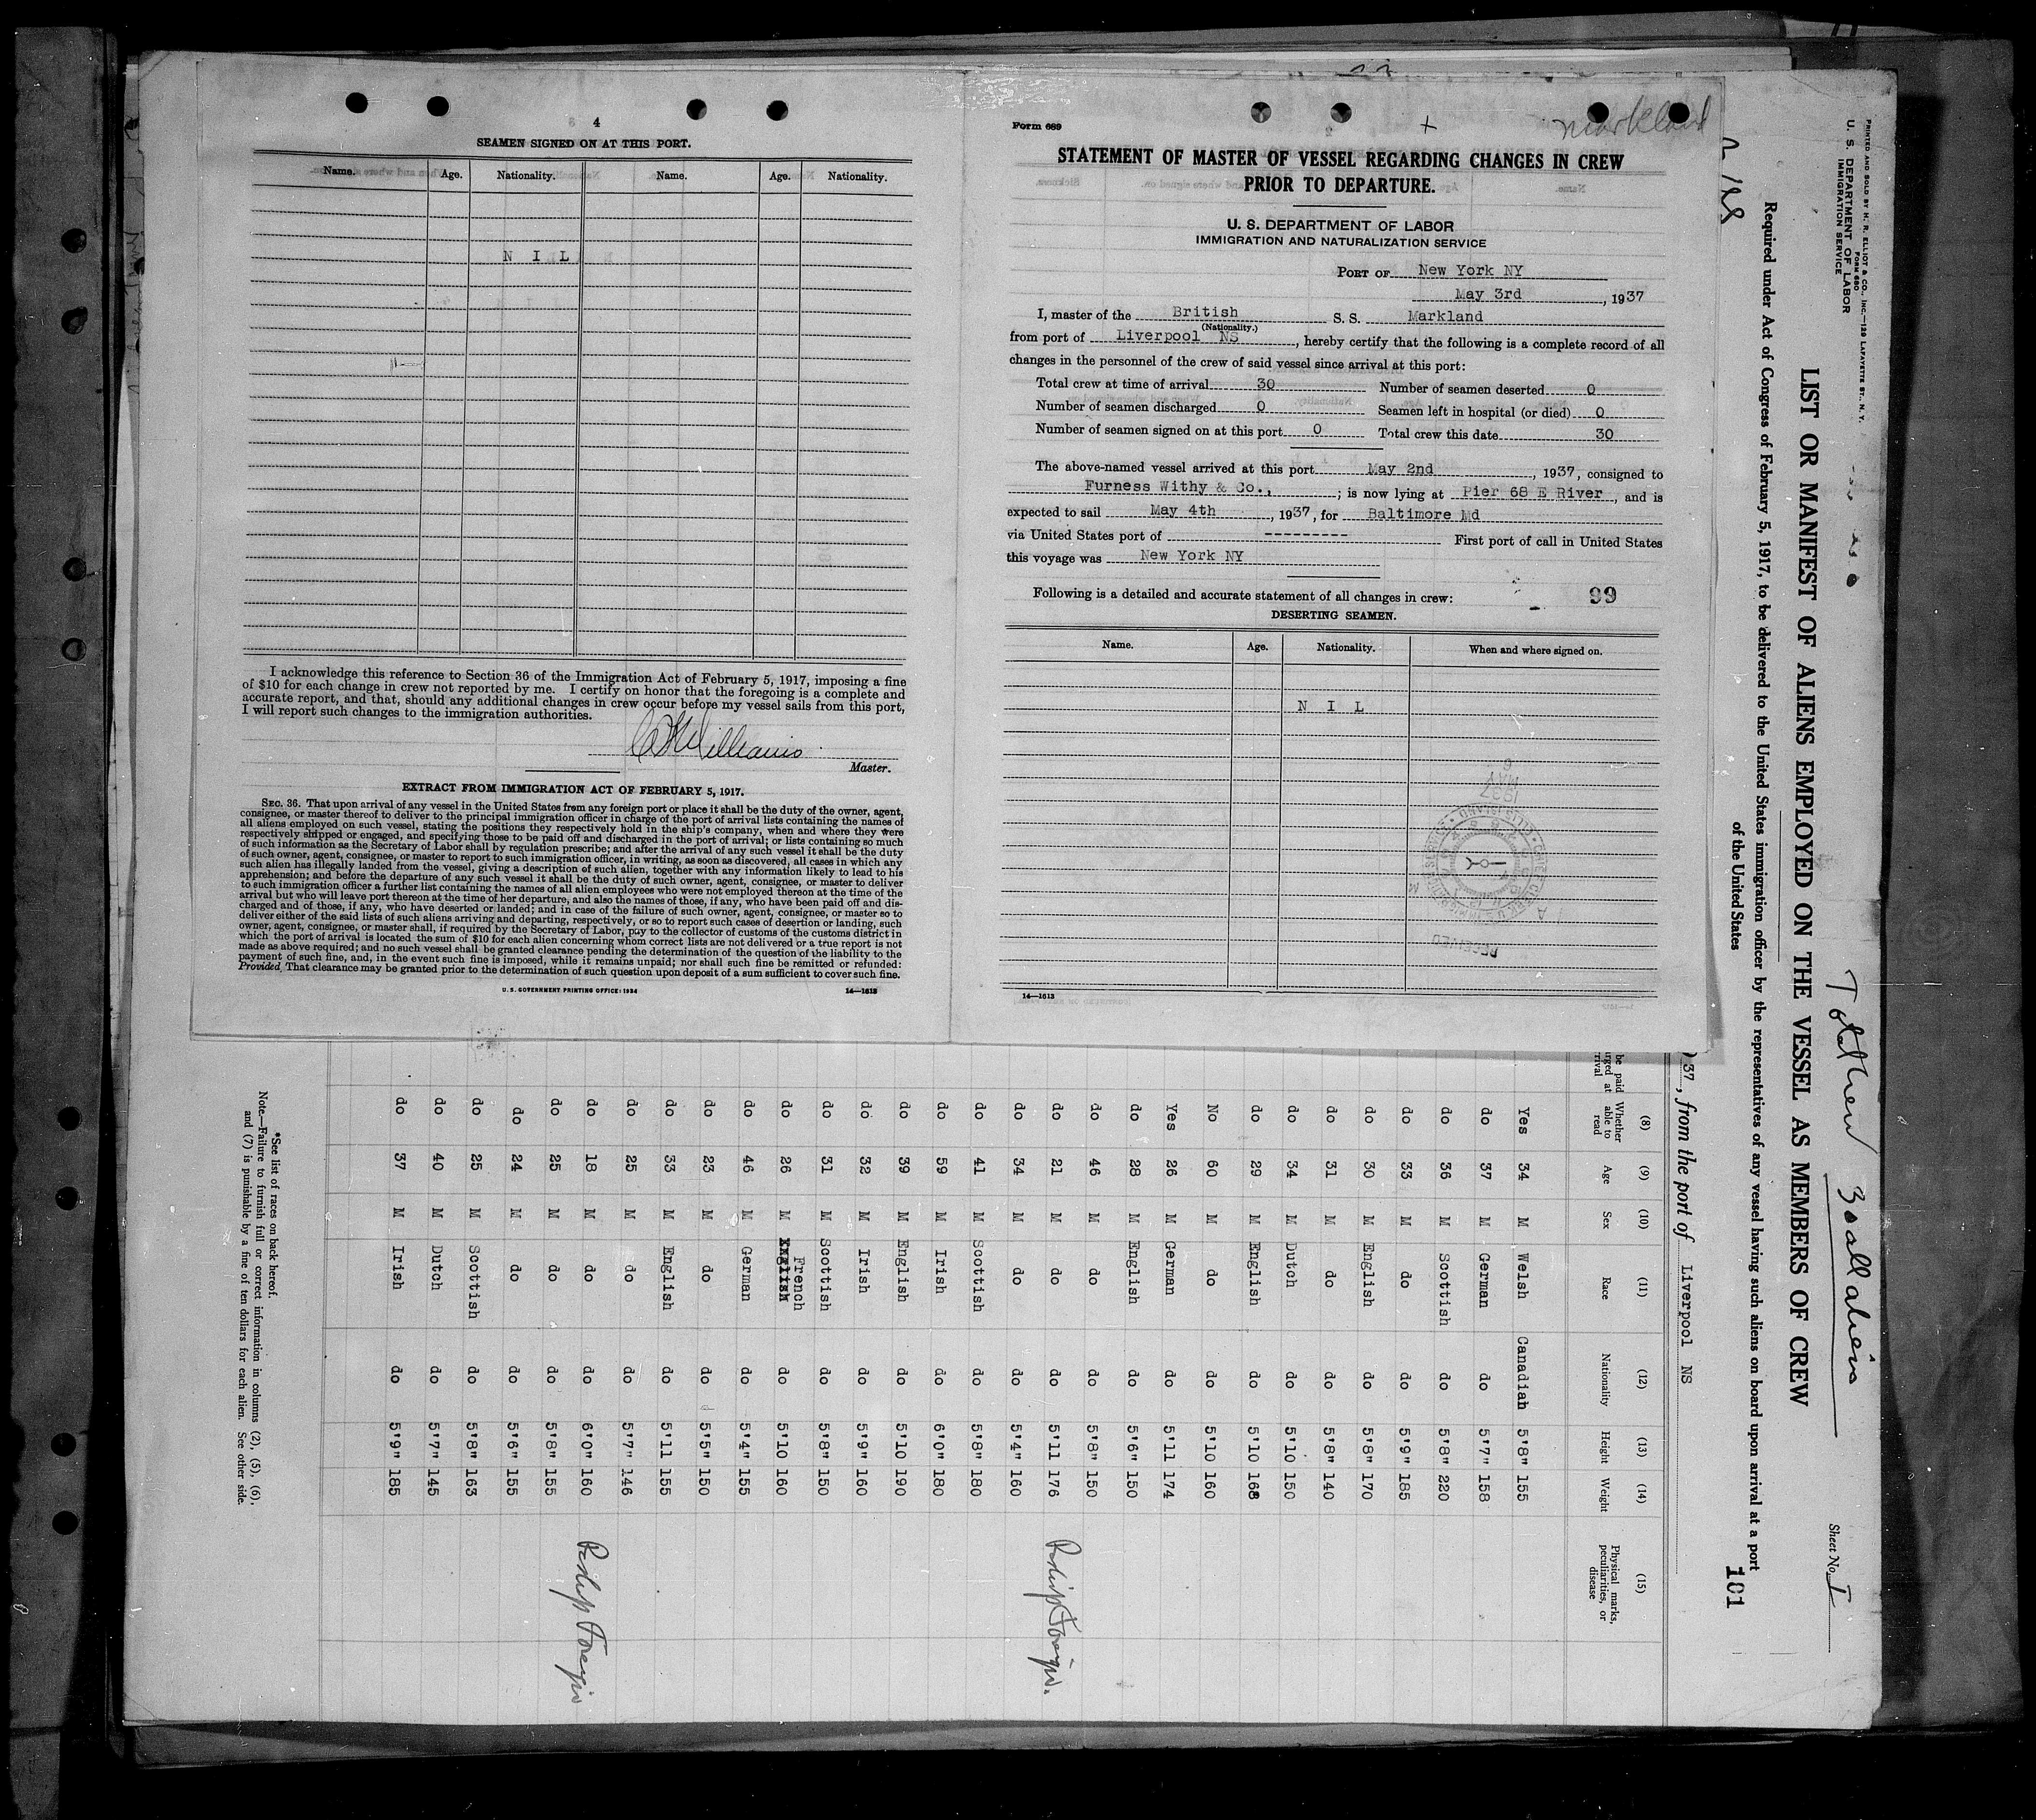 4
SEAMEN SIGNED ON AT THIS PORT.
Name. Age. Nationality. Name. Age. Nationality.
N I L
I acknowledge this reference to Section 36 of the Immigration Act of February 5, 1917, imposing a fine
of $10 for each change in crew not reported by me. I certify on honor that the foregoing is a complete and
accurate report, and that, should any additional changes in crew occur before my vessel sails from this port,
I will report such changes to the immigration authorities.
Williams
Master.
EXTRACT FROM IMMIGRATION ACT OF FEBRUARY 5, 1917.
SEC. 36. That upon arrival of any vessel in the United States from any foreign port or place it shall be the duty of the owner, agent,
consignee, or master thereof to deliver to the principal immigration officer in charge of the port of arrival lists containing the names of
all aliens employed on such vessel, stating the positions they respectively hold in the ship's company, when and where they were
respectively shipped or engaged, and specifying those to be paid off and discharged in the port of arrival; or lists containing so much
of such information as the Secretary of Labor shall by regulation prescribe; and after the arrival of any such vessel it shall be the duty
of such owner, agent, consignee, or master to report to such immigration officer, in writing, as soon as discovered, all cases in which any
such alien has illegally landed from the vessel, giving a description of such alien, together with any information likely to lead to his
apprehension; and before the departure of any such vessel it shall be the duty of such owner, agent, consignee, or master to deliver
to such immigration officer a further list containing the names of all alien employees who were not employed thereon at the time of the
arrival but who will leave port thereon at the time of her departure, and also the names of those, if any, who have been paid off and dis-
charged and of those, if any, who have deserted or landed; and in case of the failure of such owner, agent, consignee, or master so to
deliver either of the said lists of such aliens arriving and departing, respectively, or so to report such cases of desertion or landing, such
owner, agent, consignee, or master, shall, if required by the Secretary of Labor, pay to the collector of customs of the customs district in
which the port of arrival is located the sum of $10 for each alien concerning whom correct lists are not delivered or a true report is not
made as above required; and no such vessel shall be granted clearance pending the determination of the question of the liability to the
payment of such fine, and, in the event such fine is imposed, while it remains unpaid; nor shall such fine be remitted or refunded:
Provided, That clearance may be granted prior to the determination of such question upon deposit of a sum sufficient to cover such fine.
U. S. GOVERNMENT PRINTING OFFICE: 1934 14—1613
Form 689
Markland
STATEMENT OF MASTER OF VESSEL REGARDING CHANGES IN CREW
PRIOR TO DEPARTURE.
U. S. DEPARTMENT OF LABOR
IMMIGRATION AND NATURALIZATION SERVICE
PORT OF New York NY
May 3rd, 1937
I, master of the British S. S. Markland
(Nationality.)
from port of Liverpool NS, hereby certify that the following is a complete record of all
changes in the personnel of the crew of said vessel since arrival at this port:
Total crew at time of arrival 30 Number of seamen deserted 0
Number of seamen discharged 0 Seamen left in hospital (or died) 0
Number of seamen signed on at this port 0 Total crew this date 30
The above-named vessel arrived at this port May 2nd, 1937, consigned to
Furness Withy & Co., ; is now lying at Pier 68 E River, and is
expected to sail May 4th, 1937, for Baltimore Md
via United States port of --------- First port of call in United States
this voyage was New York NY
Following is a detailed and accurate statement of all changes in crew: 99
DESERTING SEAMEN.
Name. Age. Nationality. When and where signed on.
N I L
RECEIVED
14—1613
PRINTED AND SOLD BY H. R. ELLIOT & CO., INC.—129 LAFAYETTE ST., N. Y.
FORM 680
U. S. DEPARTMENT OF LABOR
IMMIGRATION SERVICE
Total Crew 30 all aliens
Sheet No. I
LIST OR MANIFEST OF ALIENS EMPLOYED ON THE VESSEL AS MEMBERS OF CREW
Required under Act of Congress of February 5, 1917, to be delivered to the United States immigration officer by the representatives of any vessel having such aliens on board upon arrival at a port
of the United States
101
37, from the port of Liverpool NS
(8) (9) (10) (11) (12) (13) (14) (15)
Whether able to read Age Sex Race Nationality Height Weight Physical marks, peculiarities, or disease
Yes 34 M Welsh Canadian 5'8" 155
do 37 M German do 5'7" 158
do 36 M Scottish do 5'8" 220
do 33 M do do 5'9" 185
do 30 M English do 5'8" 170
do 31 M do do 5'8" 140
do 34 M Dutch do 5'10 150
do 29 M English do 5'10 168
No 60 M do do 5'10 160
Yes 26 M German do 5'11 174
do 28 M English do 5'6" 150
do 46 M do do 5'8" 150
do 21 M do do 5'11 176
do 34 M do do 5'4" 160
do 41 M Scottish do 5'8" 180
do 59 M Irish do 6'0" 180
do 39 M English do 5'10 190
do 32 M Irish do 5'9" 160
do 31 M Scottish do 5'8" 150
do 26 M English French do 5'10 160
do 46 M German do 5'4" 155
do 23 M do do 5'5" 150
do 33 M English do 5'11 155
do 25 M do do 5'7" 146
do 18 M do do 6'0" 160
do 25 M do do 5'8" 155
do 24 M do do 5'6" 155
do 25 M Scottish do 5'8" 163
do 40 M Dutch do 5'7" 145
do 37 M Irish do 5'9" 185
*See list of races on back hereof.
Note.—Failure to furnish full or correct information in columns (2), (5), (6),
and (7) is punishable by a fine of ten dollars for each alien. See other side.